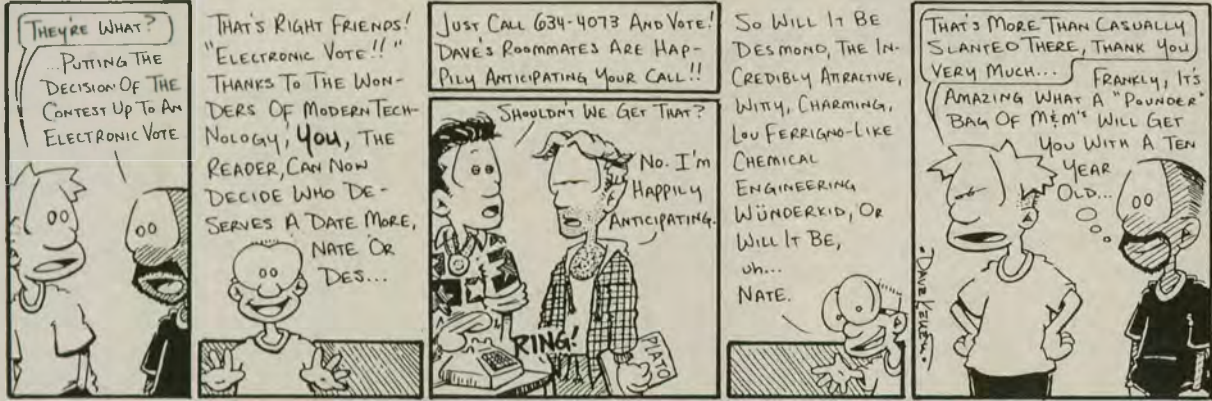 They're What?
...Putting The
Decision Of The
Contest Up To An
Electronic Vote
That's Right Friends!
"Electronic Vote!!"
Thanks To The Won-
ders Of Modern Tech-
nology, You, The
Reader, Can Now
Decide Who De-
serves A Date More,
Nate Or
Des...
Just Call 634-4073 And Vote!
Dave's Roommates Are Hap-
pily Anticipating Your Call!!
Shouldn't We Get That?
No. I'm
Happily
Anticipating.
RING!
PLATO
So Will It Be
Desmond, The In-
credibly Attractive,
Witty, Charming,
Lou Ferrigno-Like
Chemical
Engineering
Wünderkid, Or
Will It Be,
uh...
Nate.
That's More Than Casually
Slanted There, Thank You
Very Much...
Frankly, It's
Amazing What A "Pounder"
Bag Of M&M's Will Get
You With A Ten
Year
Old...
-Dave Keller-